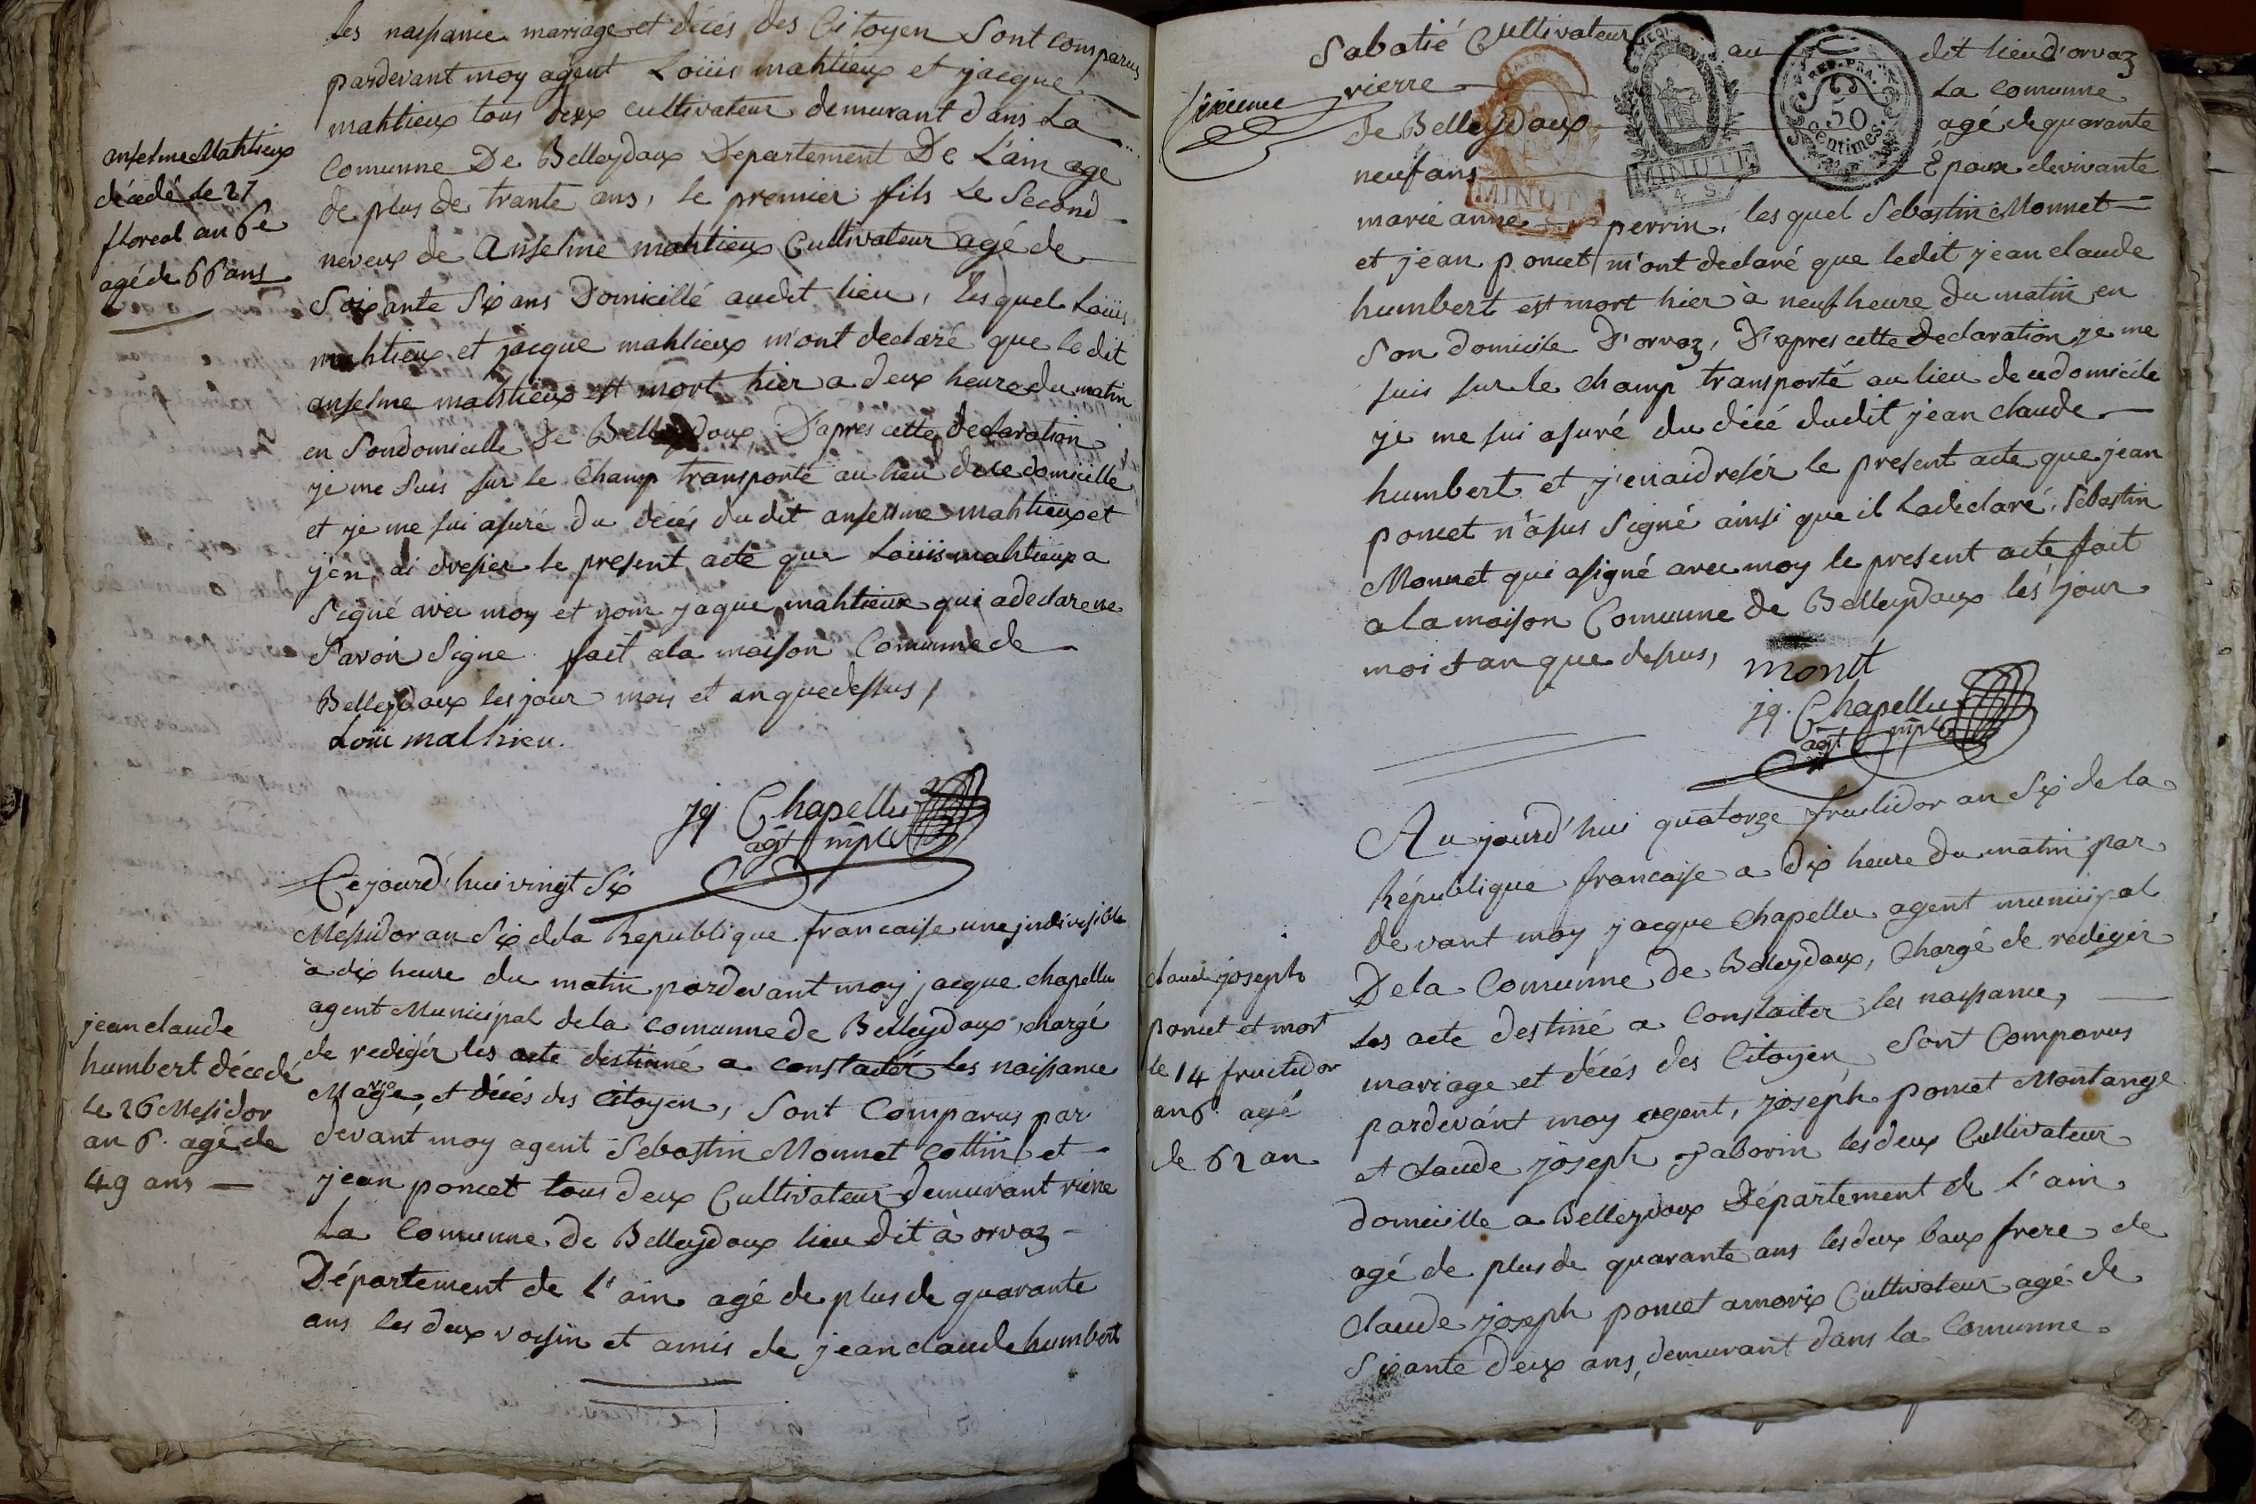 les naissance mariage et décés des Citoyen Sont comparus
pardevant moy agent Loüis mahtieux et jacque
mahtieux tous deux cultivateur demurant dans La
Comunne De Belleydoux Departement De L'ain age
de plus de trante ans, le premier fils Le Second
neveux de Anselme mahtieux Cultivateur agé de
Soixante Six ans Domicillé audit lieu, lesquel Loüis
mahtieux et jacque mahtieux m'ont declaré que le dit
anselme mahtieux est mort hier a deux heure du matin
en Son domicille De Belleydoux D'apres cette declaration
je me Suis sur le Champ transporté au lieu de ce domicille
et je me sui asuré du décés dudit anselme mahtieux et
j'en ai dresser le present acte que Loüis mahtieux a
Signé avec moy et nom jaque mahtieux qui a declare ne
Savoir Signe fait a la maison Comunne de
Belleydoux les jour mois et an que dessus,
Loüi mathieu.
jq Chapellu
agt mpl
anselme Mahtieux
décédé le 27
floreal an 6e
agé de 66 ans
Cejourd'hui vingt Six
Messidor an Six de la Republique francaise une indivisible
a dix heure du matin pardevant moy jacque chapellu
agent Municipal de la comunne de Belleydoux chargé
de redigér les acte destinné a constatér les naissance
Mariage et décés des Citoyen, Sont Comparus par
devant moy agent Sebastin Monnet Cottin et
jean poncet tous deux Cultivateur demurant rière
La Comunne de Belleydoux lieu dit à orvaz
Département de l'ain agé de plus de quarante
ans les deux voisin et amis de jean claude humbert
jean claude
humbert décedé
le 26 Mesidor
an 6. agé de
49 ans
Sabatié Cultivateur au dit lieu d'orvaz
rierre La comunne
de Belleydoux agé de quarante
neuf ans Époux devivante
marie anne perrin, lesquel Sebastin Monnet
et jean poncet m'ont declaré que ledit jean claude
humbert est mort hier à neuf heure du matin en
Son domicile D'orvaz, D'apres cette Declaration je me
suis sur le champ transporté au lieu de ce domicile
je me sui asuré du décé dudit jean claude
humbert et j'en ai dresér le present acte que jean
poncet n'a sus Signé ainsi que il la declaré, Sebastin
Monnet qui a signé avec moy le present acte fait
a la maison Comunne de Belleydoux les jour
moi et an que dessus,
REP. FRA.
50
Centimes
MINUTE
4 S
MINUTE
jq. Chapellu
agt mpl
Aujourd'hui quatorze fructidor an Six de la
République francaise a dix heure du matin par
devant moy jacque Chapellu agent municipal
De la Comunne de Beleydoux, Chargé de redigér
Les acte destiné a Constater les naissance,
mariage et décés des Citoyen Sont Comparus
pardevant moy agent, joséph poncet Montange
et claude joseph les deux Cultivateur
domicille a Belleydoux Département de l'ain
agé de plus de quarante ans les deux baux frere de
Claude joseph poncet Cultivateur agé de
Sixante deux ans, demurant dans la Comunne
claud joseph
poncet et mort
le 14 fructidor
an 6. agé
de 62 an